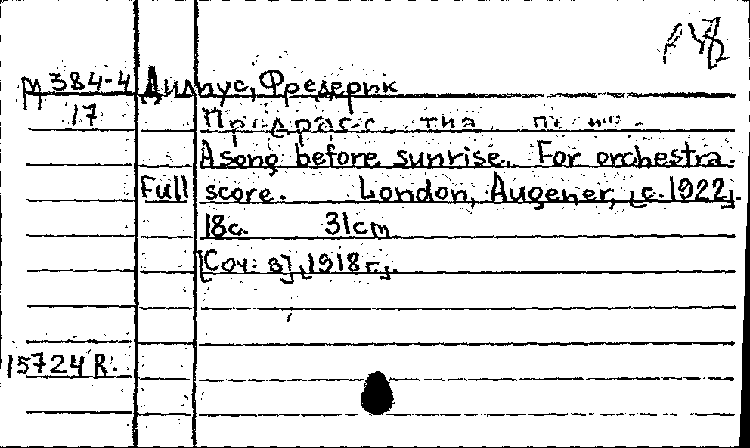 М 384-4 Дилиус, Фредерик
17
A song before sunrise. For orchestra.
Full score. London, Augener, [c. 1922].
18с. 31cm
[Соч: в] [1918 г.].
15724 R.